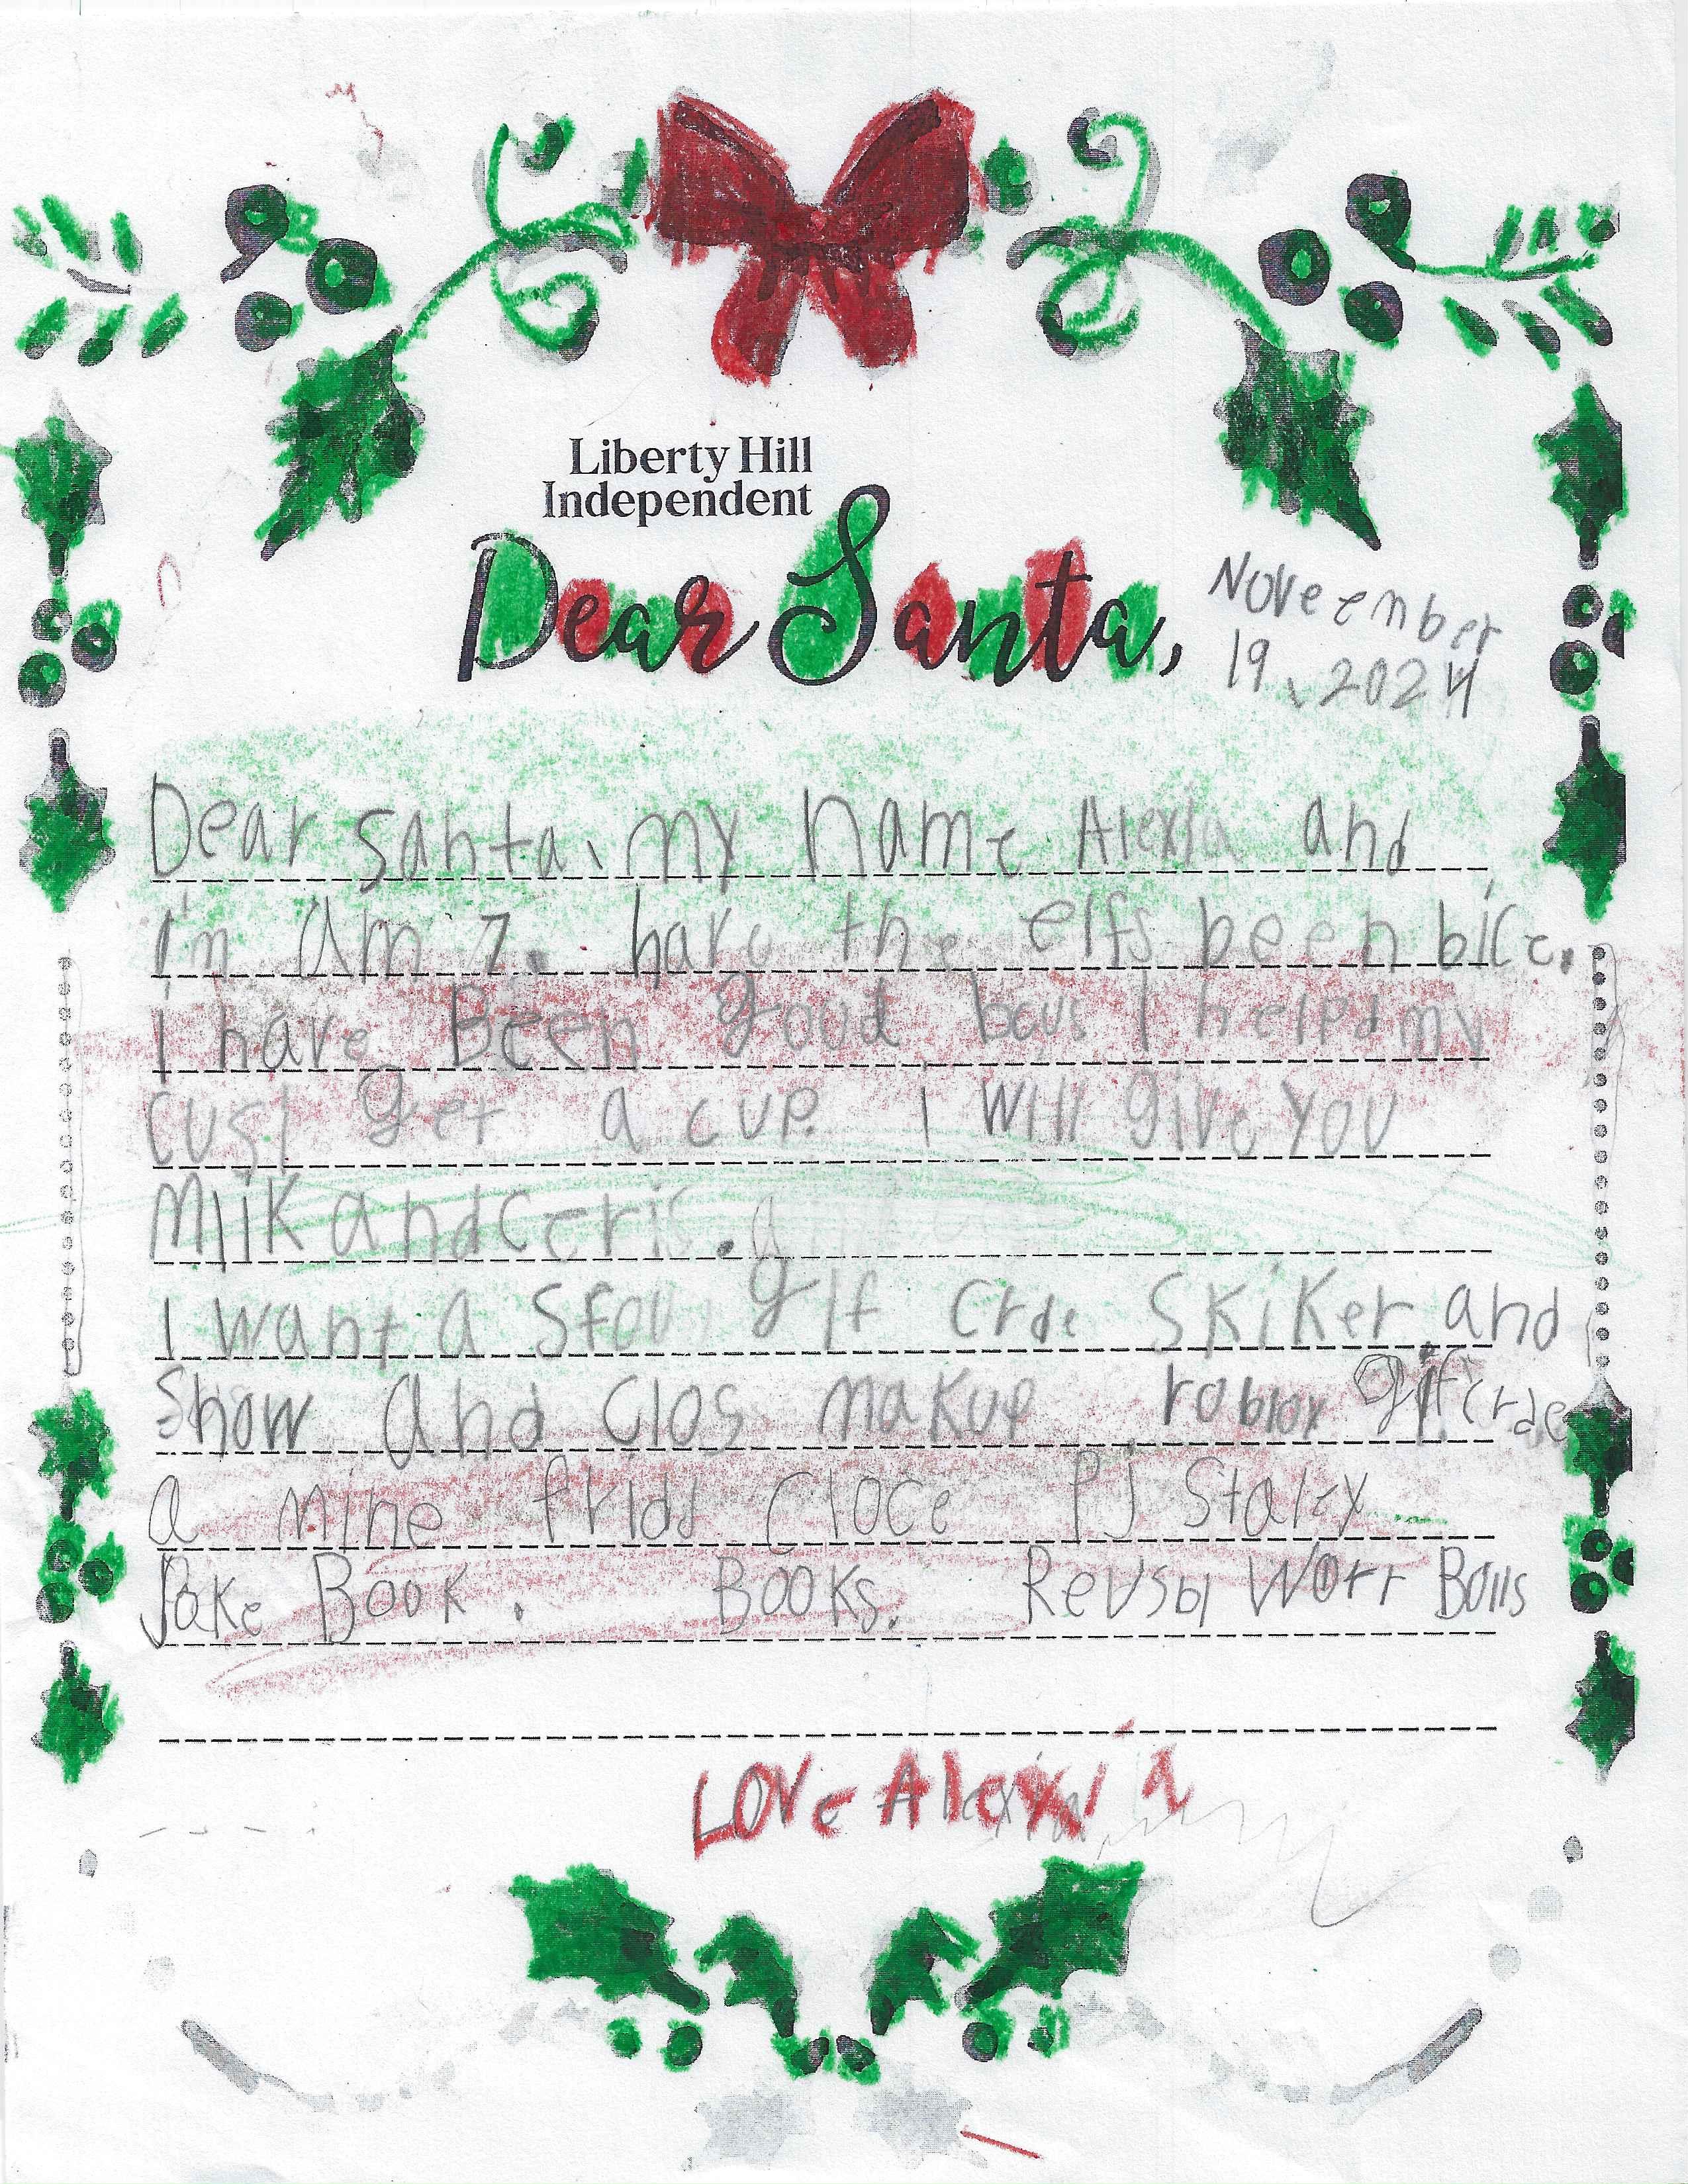 Liberty Hill
Independent
Dear Santa,
November
19, 2024
Dear santa, my name Alexia and
I'm am 7. have the elfs been bice.
I have Been good bcus I helpd my
cusl get a cup. I will give you
Mlik and ceris.
I want a gift crde skiker and
Show and clos makup roblox gift crde
a mine fridd cloce PJ Staley
Pake Book. Books. Reusbl Worr Bolls
LOVE Alexia